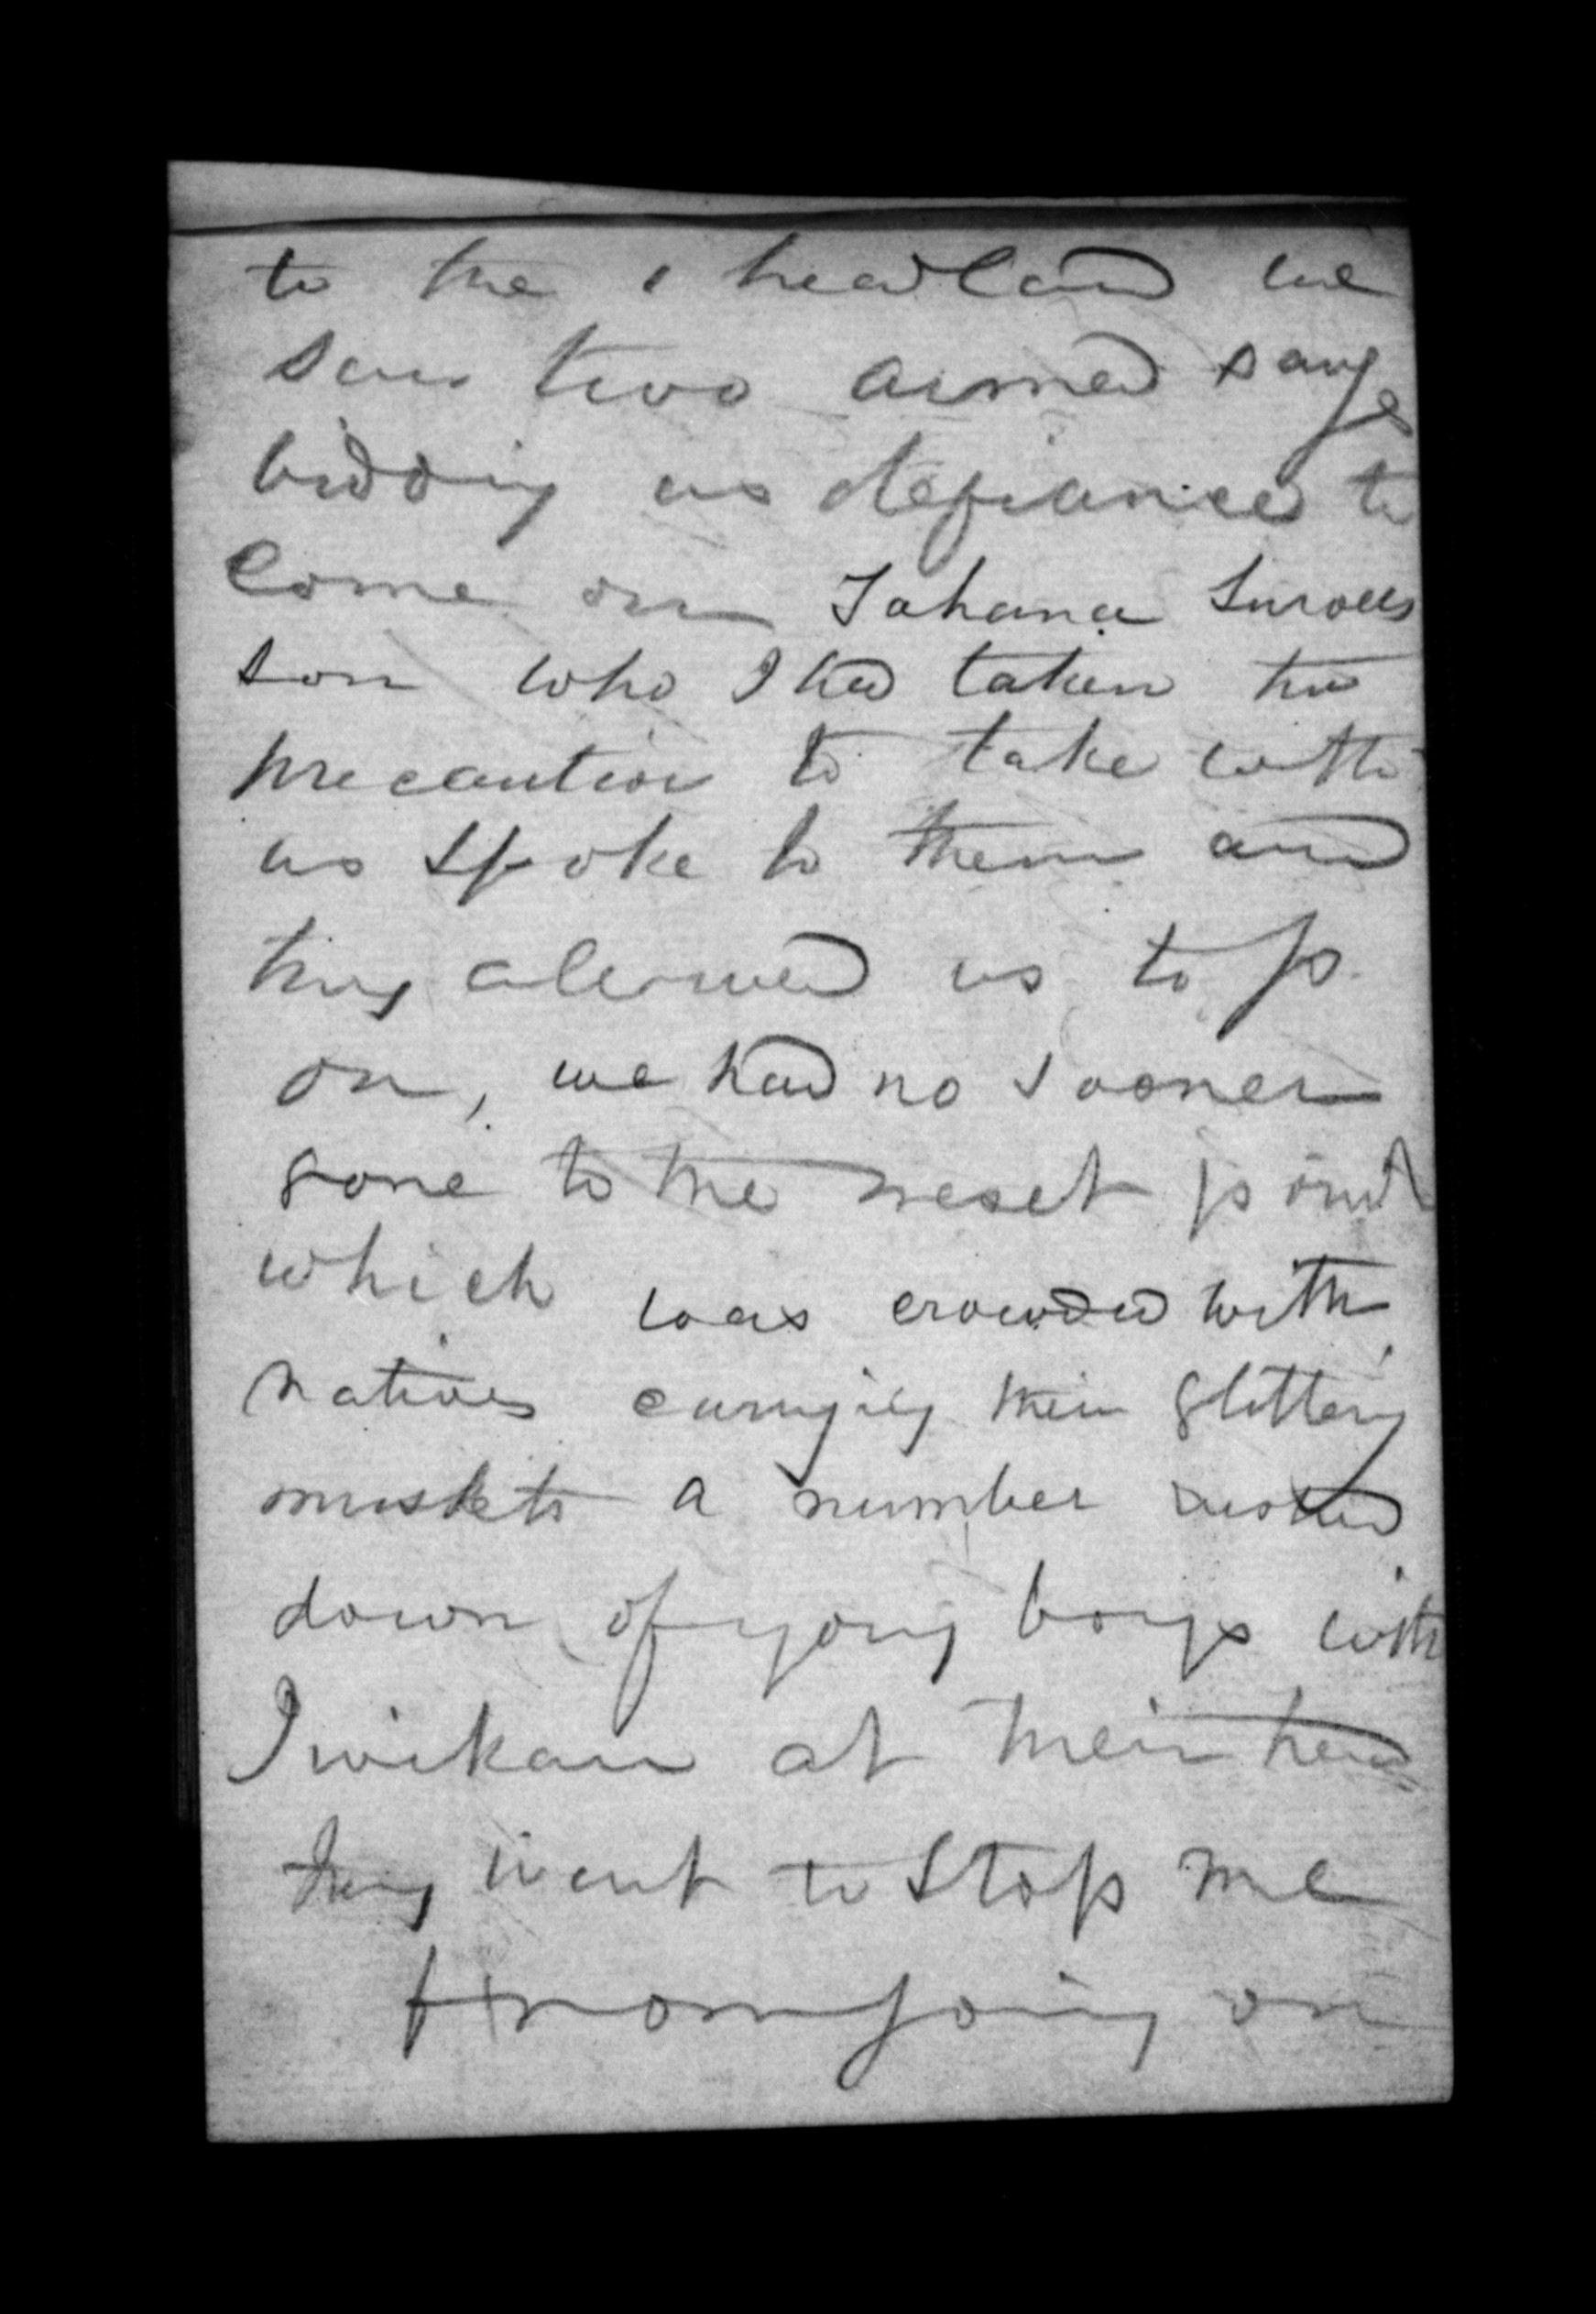 to the headland we
saw two armed savage
bidding us defiance to
come on Tohana
son who I had taken the
precaution to take with
us spoke to them and
they allowed us to p
on, we had no sooner
gone to the next point
which was crowded with
natives carrying their glittering
muskets a number rushed
down of young boys with
Iwikau at their head
they went to stop me
from going on